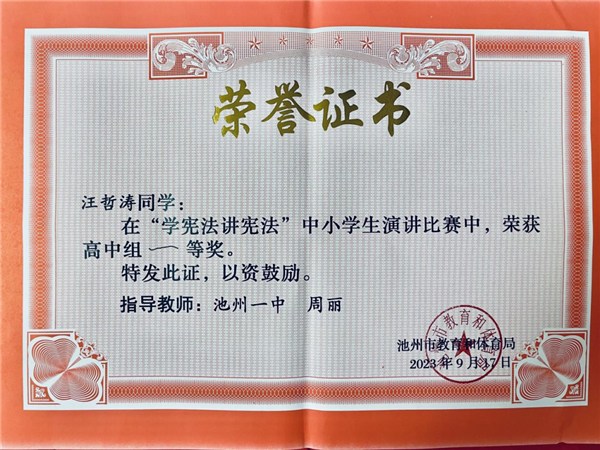 荣誉证书
汪哲涛同学：
在“学宪法讲宪法”中小学生演讲比赛中，荣获
高中组 一 等奖。
特发此证，以资鼓励。
指导教师：池州一中 周丽
池州市教育和体育局
2023年9月17日